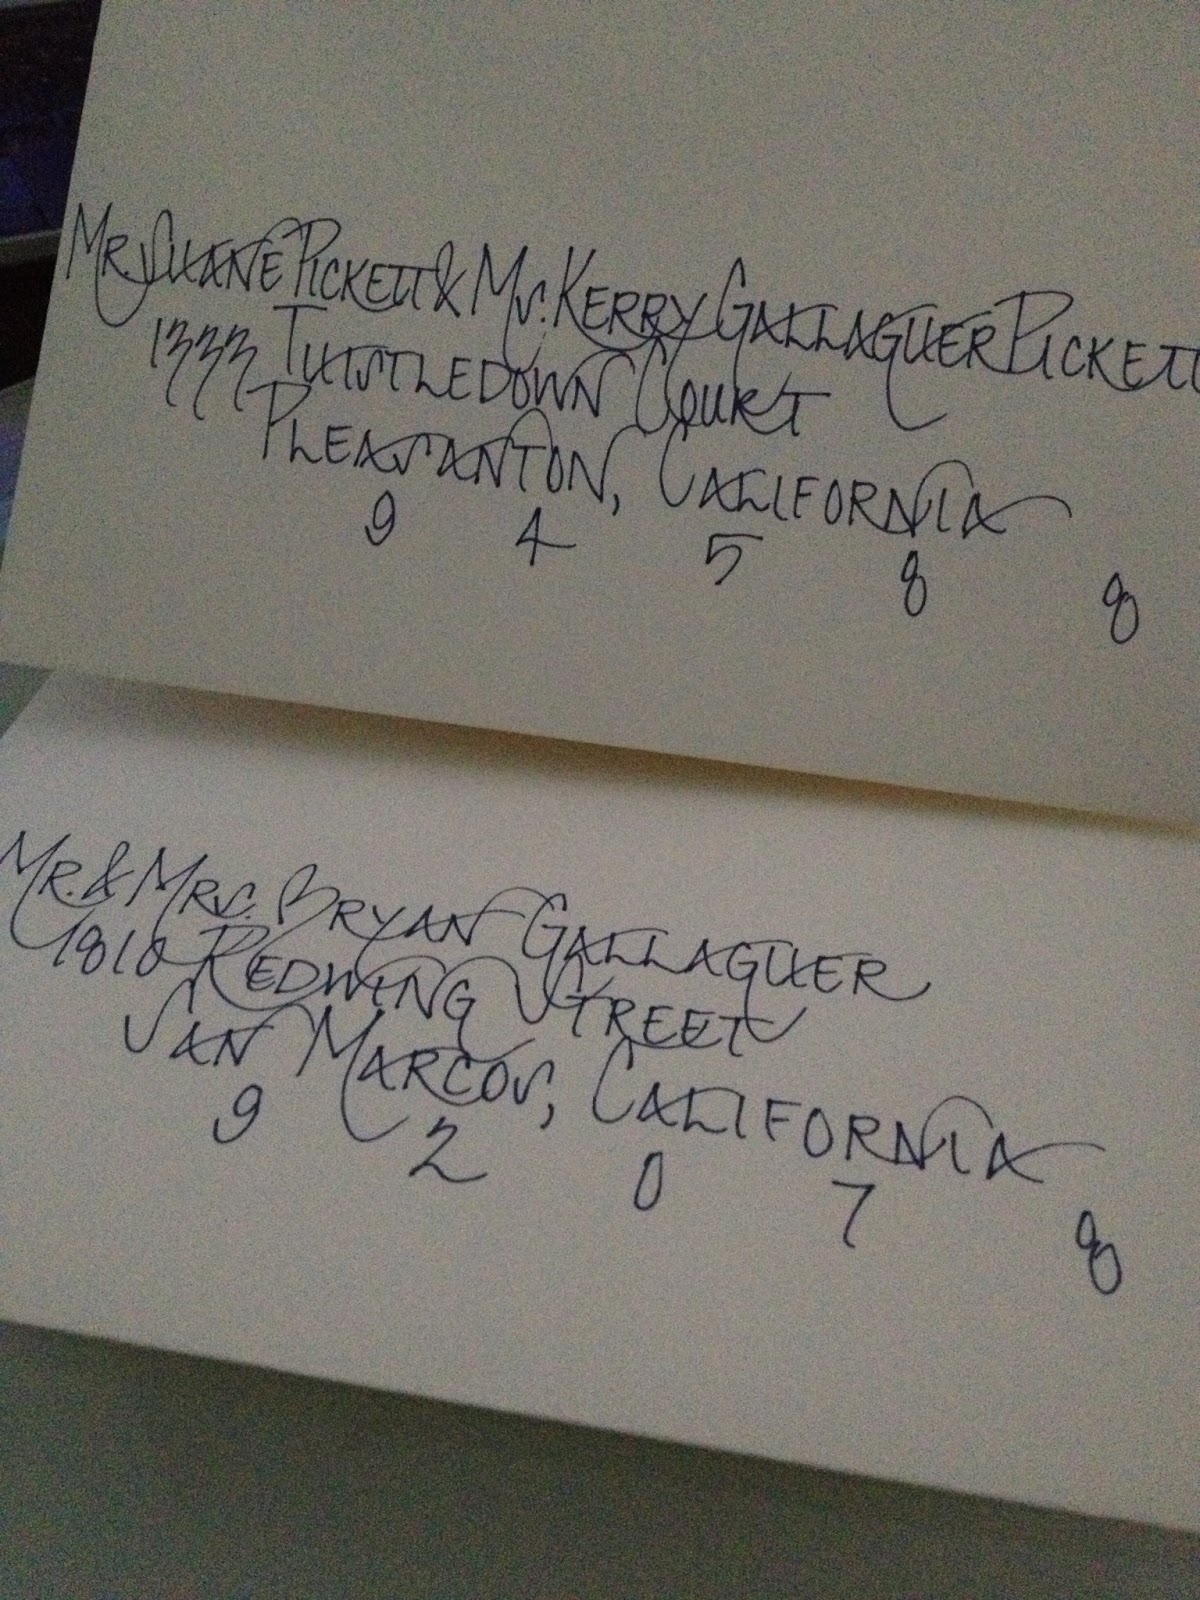 Mr. Shane Pickett & Ms. Kerry Gallagher Pickett
1333 Thistledown Court
Pleasanton, California
9 4 5 8 8
Mr. & Mrs. Bryan Gallagher
1810 Redwing Street
San Marcos, California
9 2 0 7 8